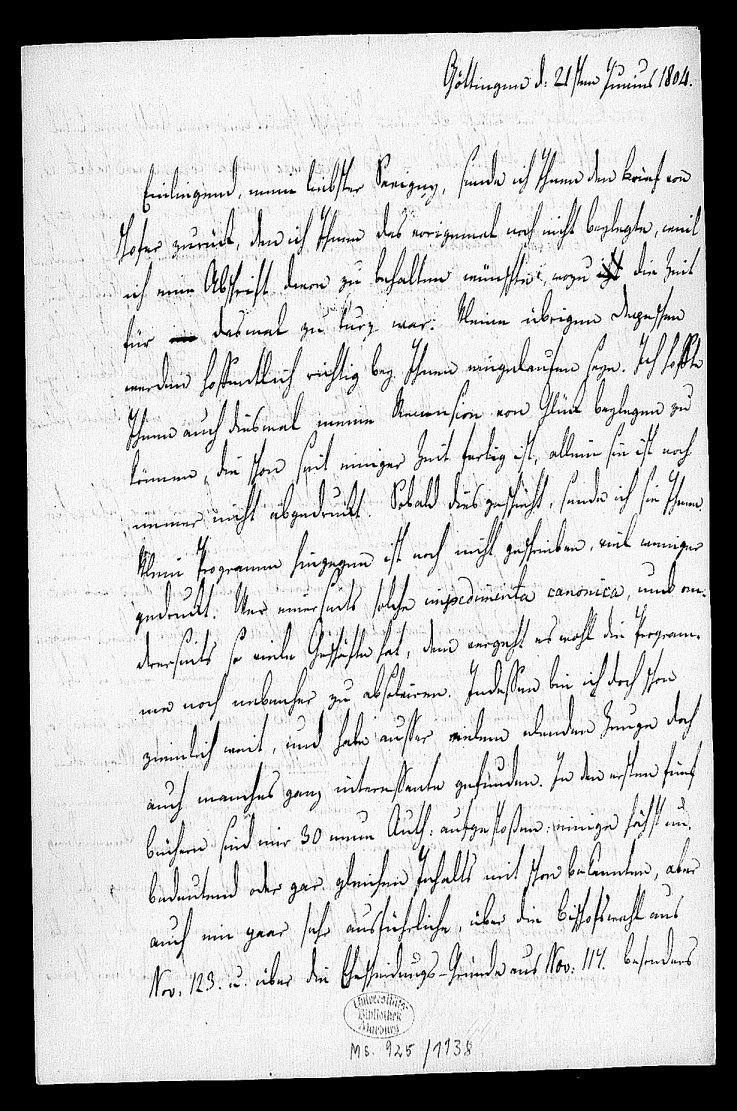 Göttingen d. 21sten Junius 1804.
Einliegend, mein liebster Savigny, sende ich Ihnen den Brief von
Hofer zurück, den ich Ihnen das vorigemal noch nicht beylegte, weil
ich eine Abschrift davon zu behalten wünschte, wozu die Zeit
für dasmal zu kurz war. Meine übrigen Depeschen
werden hoffentlich richtig bey Ihnen eingelaufen seyn. Ich hoffte
Ihnen auch diesmal meine Recension von Glück beylegen zu
können, die schon seit einiger Zeit fertig ist, allein sie ist noch
immer nicht abgedruckt. Sobald dies geschieht, sende ich sie Ihnen.
Mein Programm hingegen ist noch nicht geschrieben, viel weniger
gedruckt. Wer einerseits solche impedimenta canonica, und an-
drerseits so viele Geschäfte hat, dem vergeht es wohl die Program-
me noch nebenher zu absolviren. Indessen bin ich doch schon
ziemlich weit, und habe ausser vielem elenden Zeuge doch
auch manches ganz interessante gefunden. In den ersten fünf
Büchern sind mir 30 neue Auth. aufgestoßen: einige höchst un-
bedeutend oder gar gleichen Inhalts mit schon bekannten, aber
auch ein paar sehr ausführliche, über die Bischofswahl aus
Nov. 123. u. über die Ehescheidungs-Gründe aus Nov. 117. besonders
Universitäts-
Bibliothek
Marburg
Ms. 925/1138